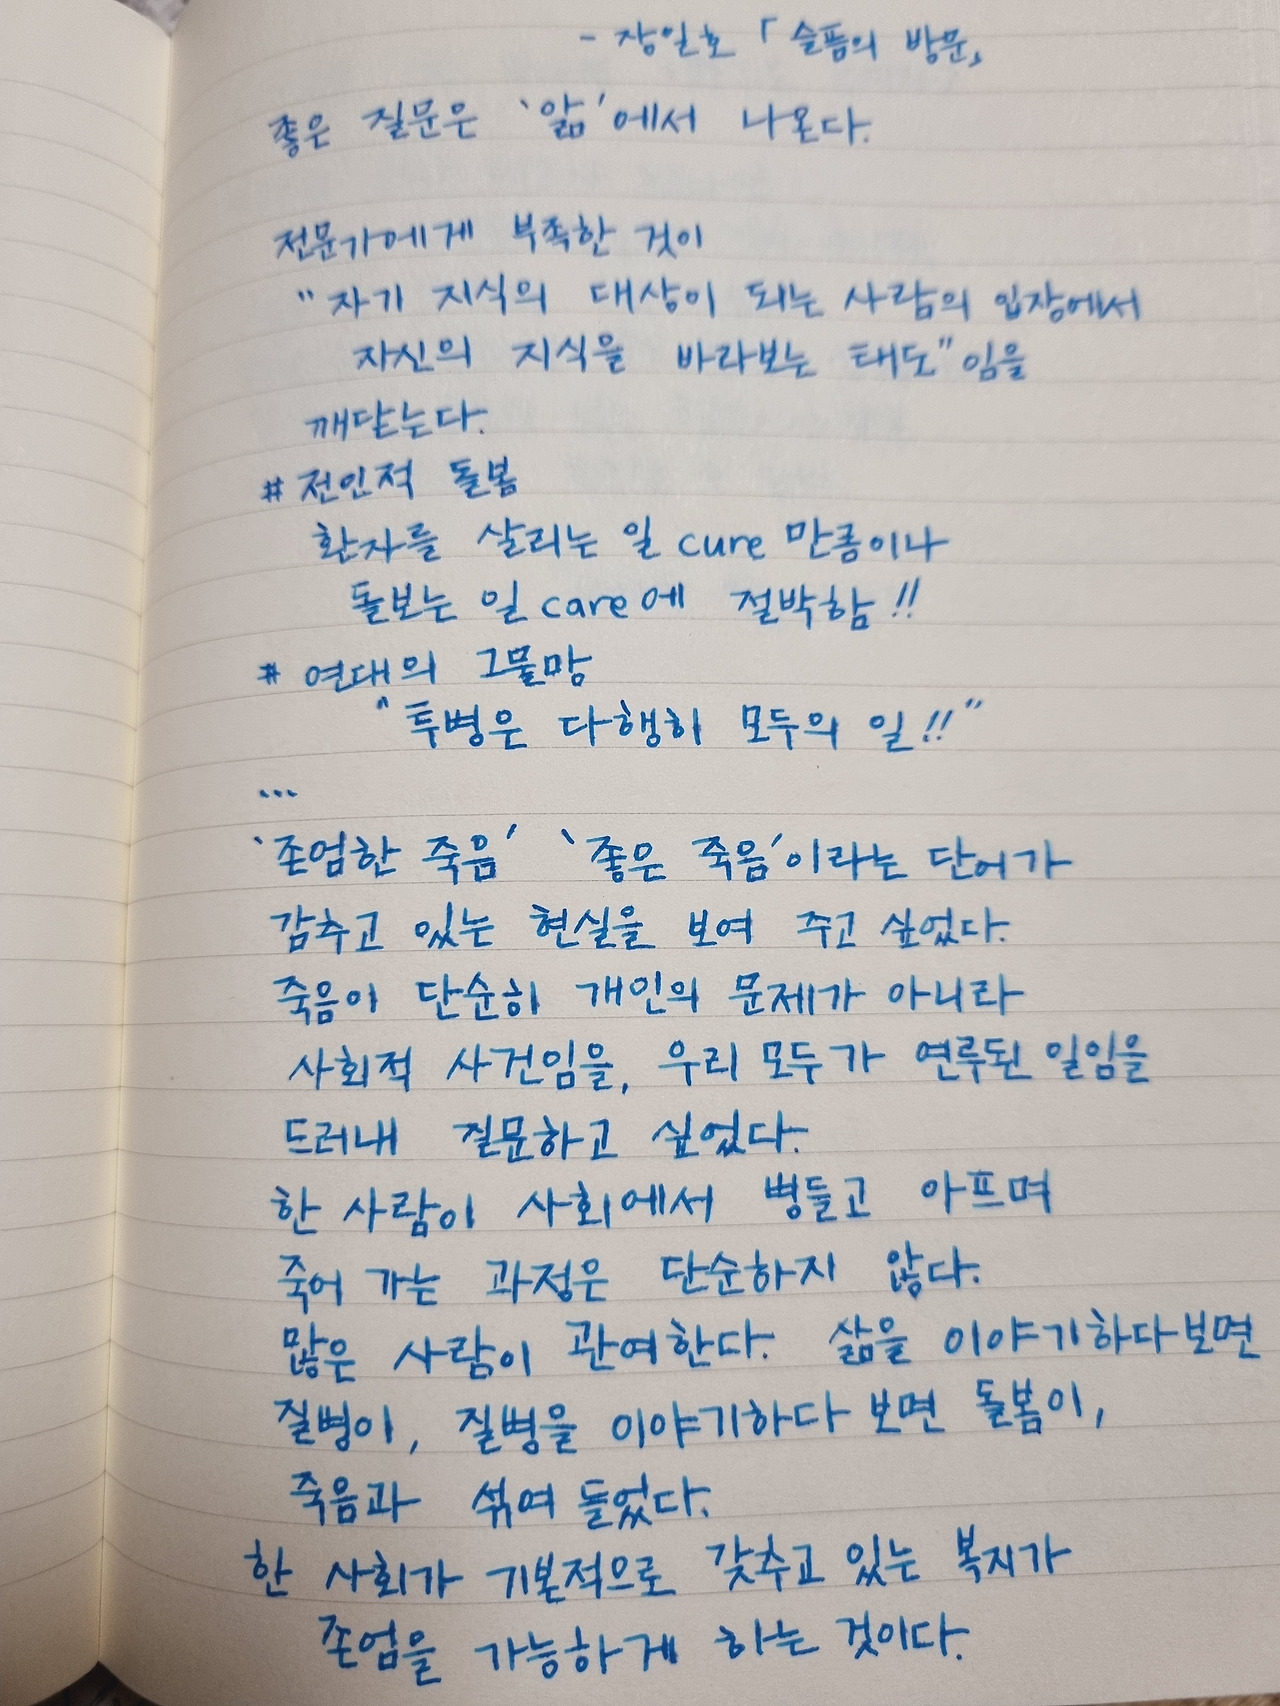 - 장일호 「슬픔의 방문」
좋은 질문은 '앎'에서 나온다.
전문가에게 부족한 것이
"자기 지식의 대상이 되는 사람의 입장에서
자신의 지식을 바라보는 태도"임을
깨닫는다.
# 전인적 돌봄
환자를 살리는 일 cure 만큼이나
돌보는 일 care에 절박함!!
# 연대의 그물망
"투병은 다행히 모두의 일!!"
...
'존엄한 죽음' '좋은 죽음'이라는 단어가
감추고 있는 현실을 보여 주고 싶었다.
죽음이 단순히 개인의 문제가 아니라
사회적 사건임을, 우리 모두가 연루된 일임을
드러내 질문하고 싶었다.
한 사람이 사회에서 병들고 아프며
죽어 가는 과정은 단순하지 않다.
많은 사람이 관여한다. 삶을 이야기하다보면
질병이, 질병을 이야기하다 보면 돌봄이,
죽음과 섞여 들었다.
한 사회가 기본적으로 갖추고 있는 복지가
존엄을 가능하게 하는 것이다.